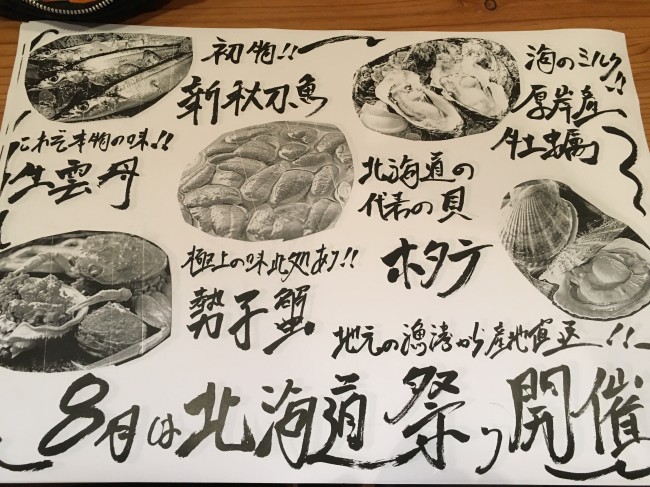 初物!!
新秋刀魚
海のミルク!!
厚岸産
牡蠣
これぞ本物の味!!
生雲丹
北海道の
代表の貝
ホタテ
極上の味此処あり!!
勢子蟹
地元の漁港から産地直送!!
8月は北海道祭り開催